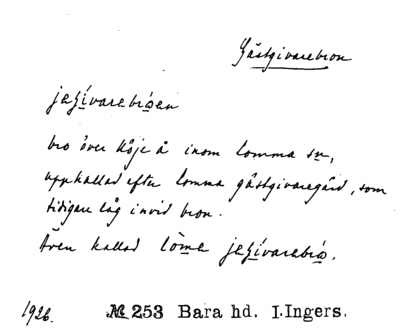 Gästgivarebron
jeʃívarebróen
bro över Höje å inom Lomma sn,
uppkallad efter Lomma gästgivaregård, som
tidigare låg invid bron.
Även kallad lòma jeʃívarebró.
1926. № 253 Bara hd. I.Ingers.